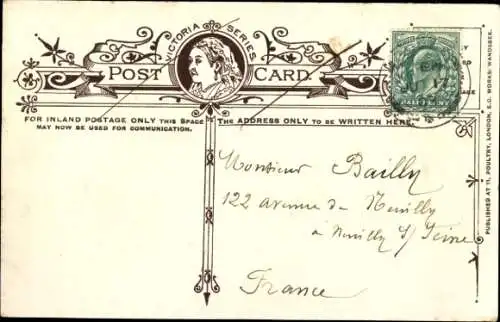 VICTORIA SERIES
POST CARD
FOR INLAND POSTAGE ONLY THIS SPACE
MAY NOW BE USED FOR COMMUNICATION.
THE ADDRESS ONLY TO BE WRITTEN HERE.
HALFPENNY
Monsieur Bailly
122 avenue de Neuilly
à Neuilly s/ Seine
France
PUBLISHED AT 11, POULTRY, LONDON, E.C. WORKS: WANDSBEK.